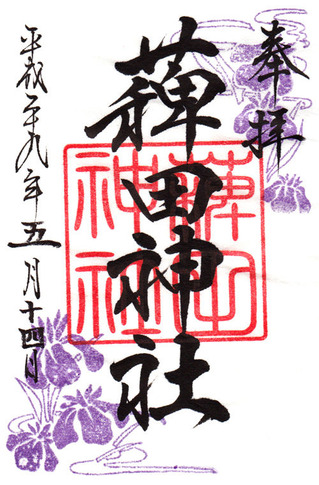 奉拝
薭田神社
薭田
神社
平成二十九年五月十四日